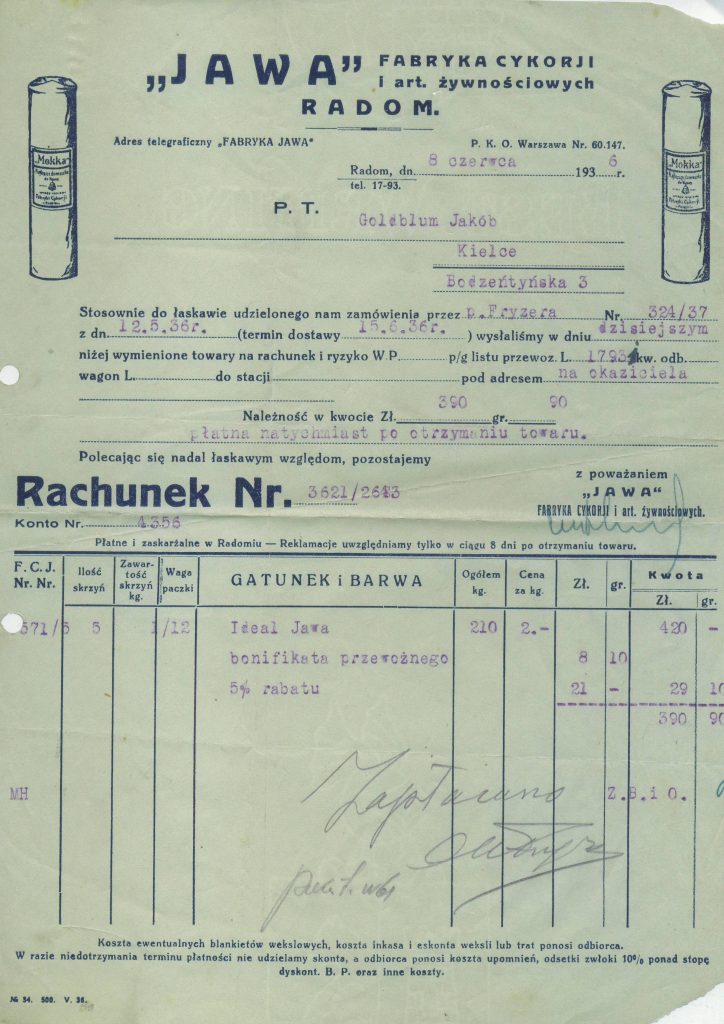 „JAWA” FABRYKA CYKORJI
i art. żywnościowych
RADOM.
Adres telegraficzny „FABRYKA JAWA“
P. K. O. Warszawa Nr. 60.147.
"Mokka"
"Mokka"
Radom, dn. 8 czerwca 1936 r.
tel. 17-93.
P. T.
Goldblum Jakób
Kielce
Bodzeńtyńska 3
Stosownie do łaskawie udzielonego nam zamówienia przez p.Fryzera Nr. 324/37
z dn. 12.5.36r. (termin dostawy 15.6.36r. ) wysłaliśmy w dniu dzisiejszym
niżej wymienione towary na rachunek i ryzyko W P. p/g listu przewoz. L. 1793 kw. odb.
wagon L. do stacji pod adresem na okaziciela
Należność w kwocie Zł. 390 gr. 90
płatna natychmiast po otrzymaniu towaru.
Polecając się nadal łaskawym względom, pozostajemy
z poważaniem
„JAWA“
FABRYKA CYKORJI i art. żywnościowych.
Rachunek Nr. 3621/2643
Konto Nr. 4356
Płatne i zaskarżalne w Radomiu — Reklamacje uwzględniamy tylko w ciągu 8 dni po otrzymaniu towaru.
F. C. J. Nr. Nr. Ilość skrzyń Zawartość skrzyń kg. Waga paczki GATUNEK i BARWA Ogółem kg. Cena za kg. Zł. gr. Kwota Zł. gr.
571/5 5 1/12 Ideal Jawa 210 2.- 420 -
bonifikata przewoźnego 8 10
5% rabatu 21 - 29 10
390 90
Zapłacono
MH Z.B.i O.
Koszta ewentualnych blankietów wekslowych, koszta inkasa i eskonta weksli lub trat ponosi odbiorca.
W razie niedotrzymania terminu płatności nie udzielamy skonta, a odbiorca ponosi koszta upomnień, odsetki zwłoki 10% ponad stopę
dyskont. B. P. oraz inne koszty.
№ 54. 500. V. 36.